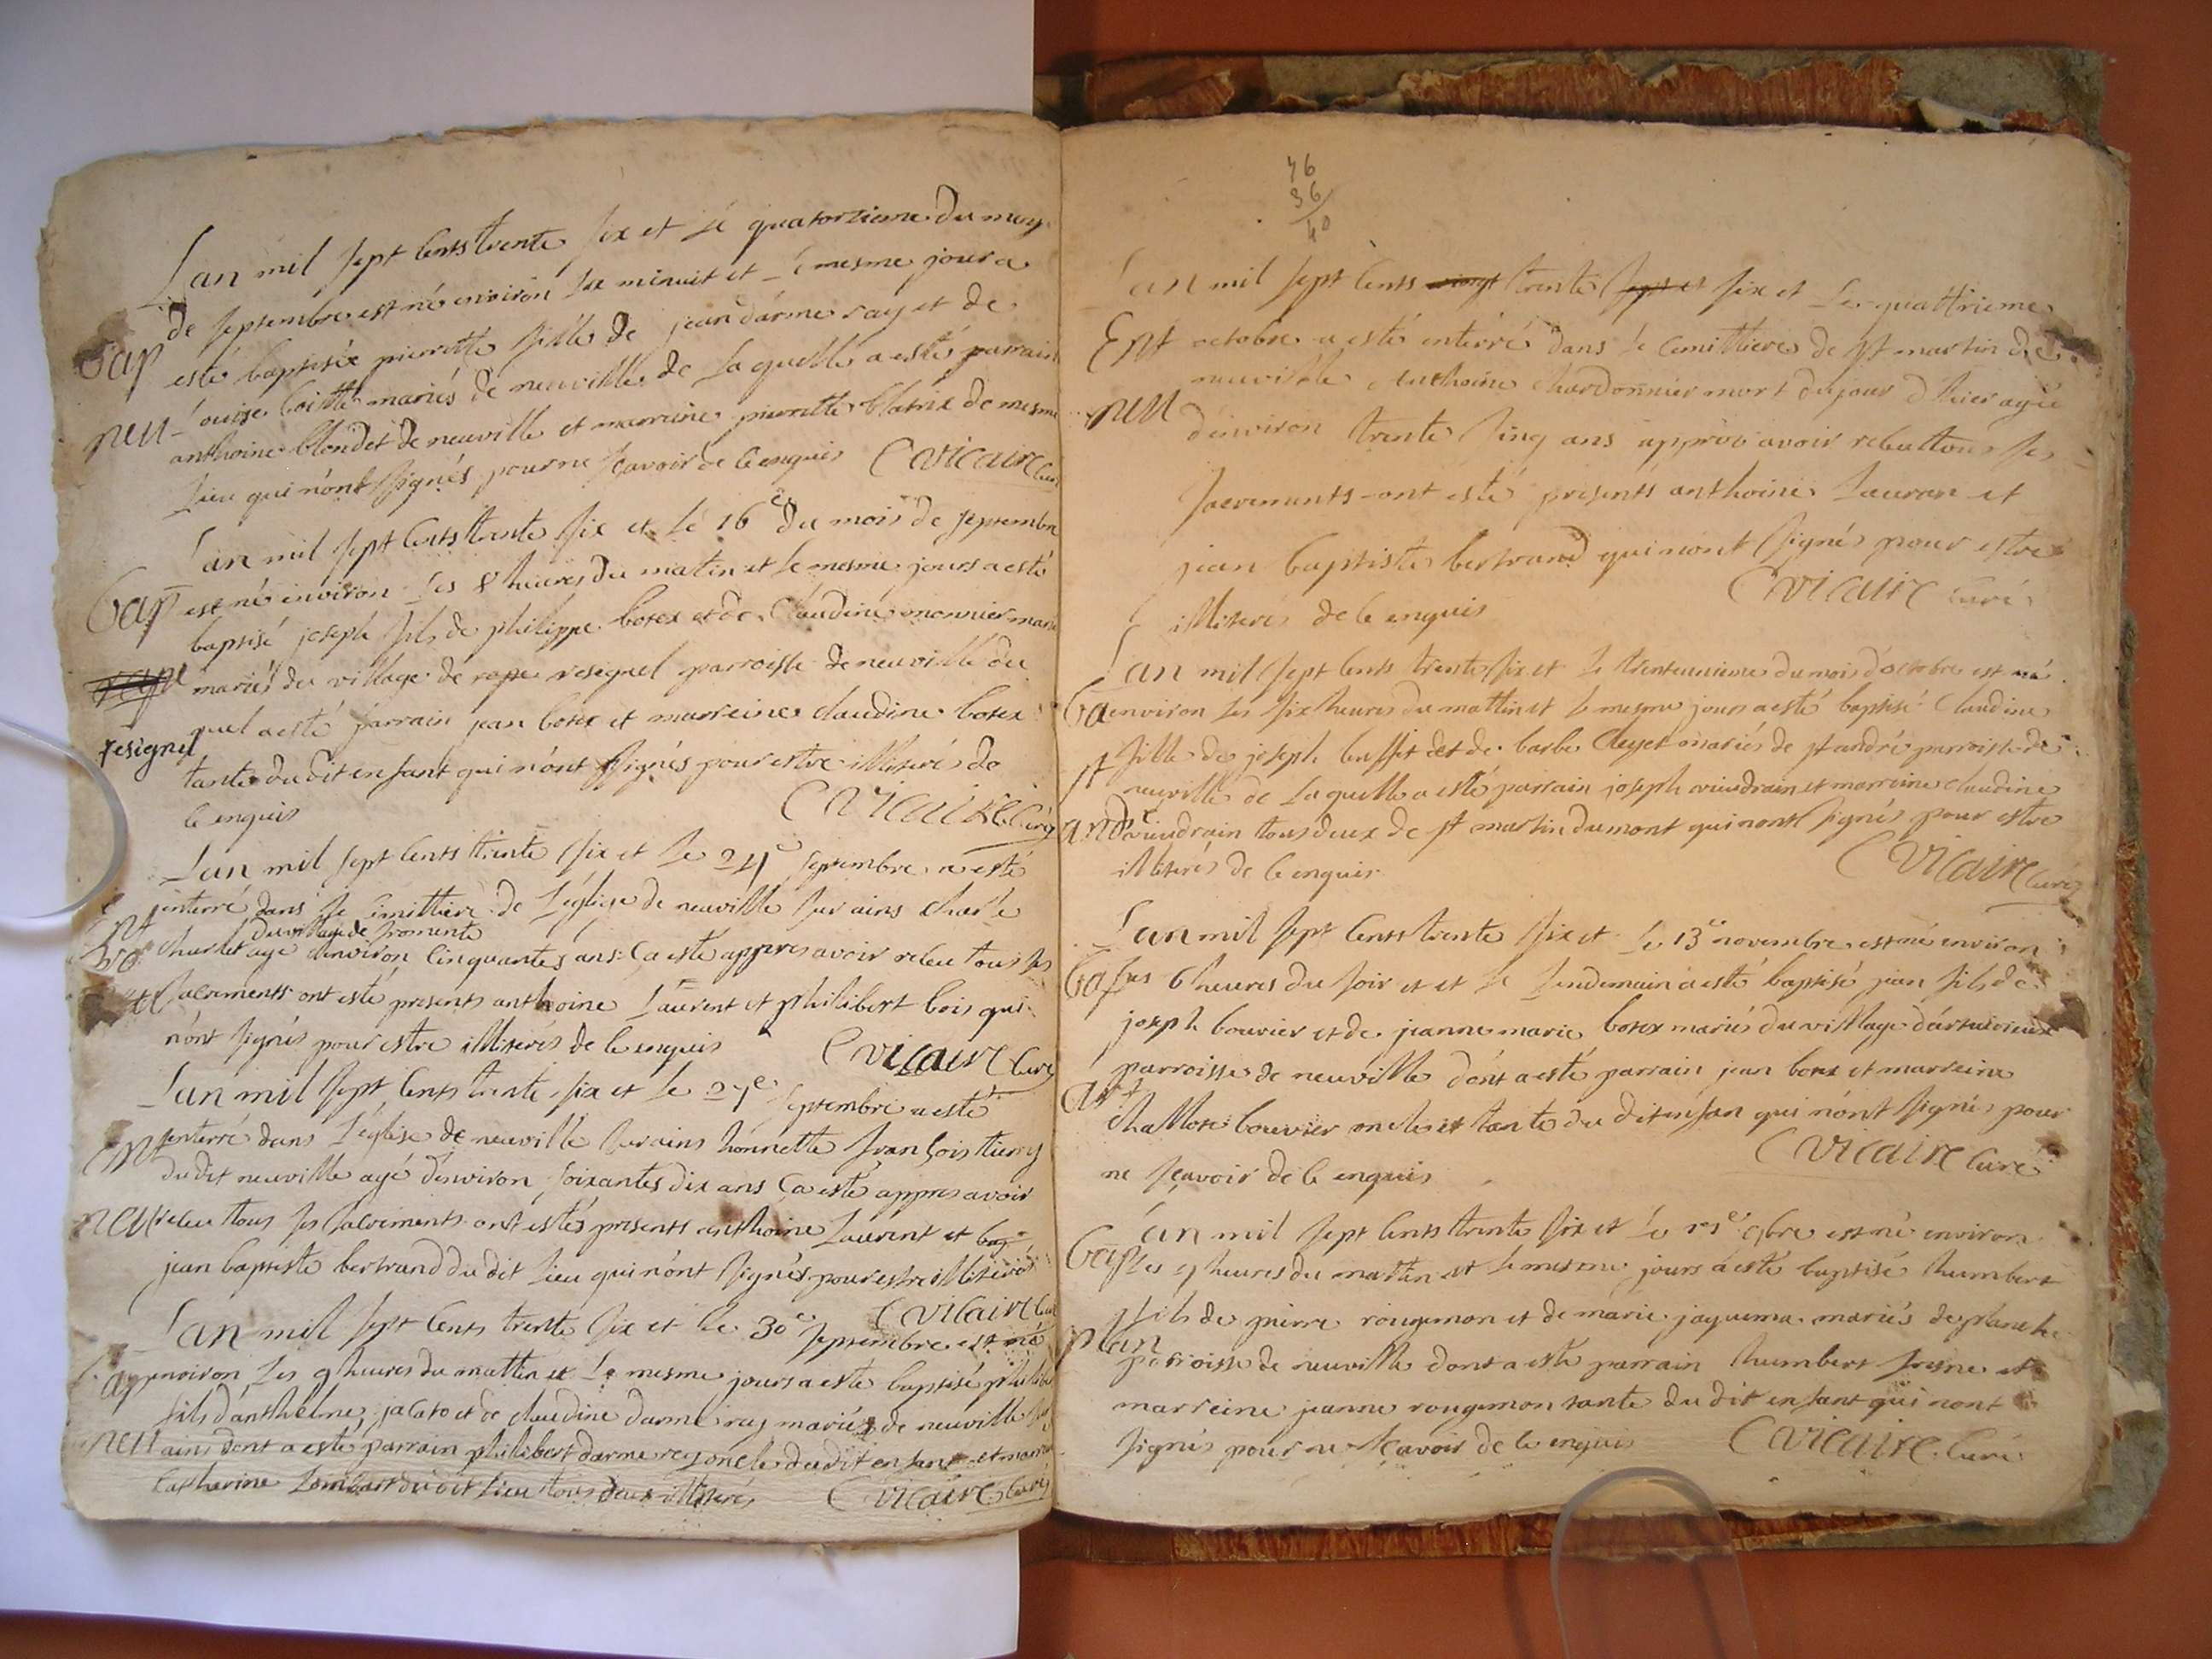 Lan mil sept cents trente six et le quatorzieme du moy
de septembre est né environ la minuit et le mesme jour a
Bap
esté baptisée pierrette fille de jean darme ray et de
neu
Louise mariés de neuville de laquelle a esté parrain
anthoine blondet de neuville et marreine pierrette de mesme
lieu qui n'ont signés pour ne sçavoir de ce enquis C Vicaire curé
Lan mil sept cents trente six et le 16e du mois de septembre
Bap
est né environ les 8 heures du matin et le mesme jours a esté
baptisé joseph fils de philippe borex et de Claudine monnier
mariés du village de rape resignel parroisse de neuville du
quel a esté parrain jean borex et marreine claudine borex
resignel
tante du dit enfant qui n'ont signés pour estre illiterés de
ce enquis C Vicaire Curé
Lan mil sept cents trente six et le 24e septembre a esté
Ent
enterré dans le cimittiere de l'église de neuville sur ains charle
du village de fromente
charlet agé denviron cinquantes ans ça esté appres avoir receu tous ses
sacrements ont esté presents anthoine Laurent et philibert bois qui
n'ont signés pour estre illiterés de ce enquis C Vicaire Curé
Lan mil sept cents trente six et le 27e septembre a esté
Ent
enterré dans l'église de neuville sur ains honnette françois thierry
du dit neuville agé denviron soixantes dix ans ça esté appres avoir
neu
receu tous ses sacrements ont estés presents anthoine Laurent et
jean baptiste bertrand du dit lieu qui n'ont signés pour estre illiterés
C Vicaire Curé
Lan mil sept cents trente six et le 30e septembre est né
Bap
environ les 9 heures du mattin et le mesme jours a esté baptisé philibert
fils danthelme jacato et de claudine darme ray mariés de neuville
neu
ains dont a esté parrain philibert darme rey oncle du dit enfant et
Catherine Lombart du dit lieu tous deux illiterés C Vicaire Curé
46
36
40
Lan mil sept cents vingt trente sept et six et le quattrieme
Ent
octobre a esté enterré dans le cimittiere de st martin de
neuville anthoine chardonnier mort du jour d'hier agée
neu
denviron trente sinq ans appres avoir tous ses
sacrements ont esté presents anthoine Lauran et
jean baptiste bertrand qui n'ont signés pour estre
illiterés de ce enquis C Vicaire curé
Lan mil sept cents trente six et le trenteunieme du mois doctobre est né
Ba
environ les six heures du mattin et le mesme jours a esté baptisé Claudine
fille de joseph buffet et de barbe Cleyet mariés de st andré parroisse de
st
neuville de laquelle a esté parrain joseph vieudrain et marreine claudine
andré
vieudrain tous deux de st martin du mont qui n'ont signés pour estre
illiterés de ce enquis C Vicaire Curé
Lan mil sept cents trente six et le 13e novembre est né environ
Bap
les 6 heures du soir et et le lendemain a esté baptisé jean fils de
joseph bouvier et de jeanne marie borex mariés du village
parroisse de neuville dont a esté parrain jean borex et marreine
art
bouvier oncle et tante du dit enfan qui n'ont signés pour
ne sçavoir de ce enquis C Vicaire Curé
Lan mil sept cents trente six et le 9bre est né environ
Bap
les 9 heures du mattin et le mesme jours a esté baptisé humbert
fils de pierre rougemon et de marie jaquema mariés de planche
plan
parroisse de neuville dont a esté parrain humbert et
marreine jeanne rougemon tante du dit enfant qui n'ont
signés pour ne sçavoir de ce enquis C Vicaire Curé